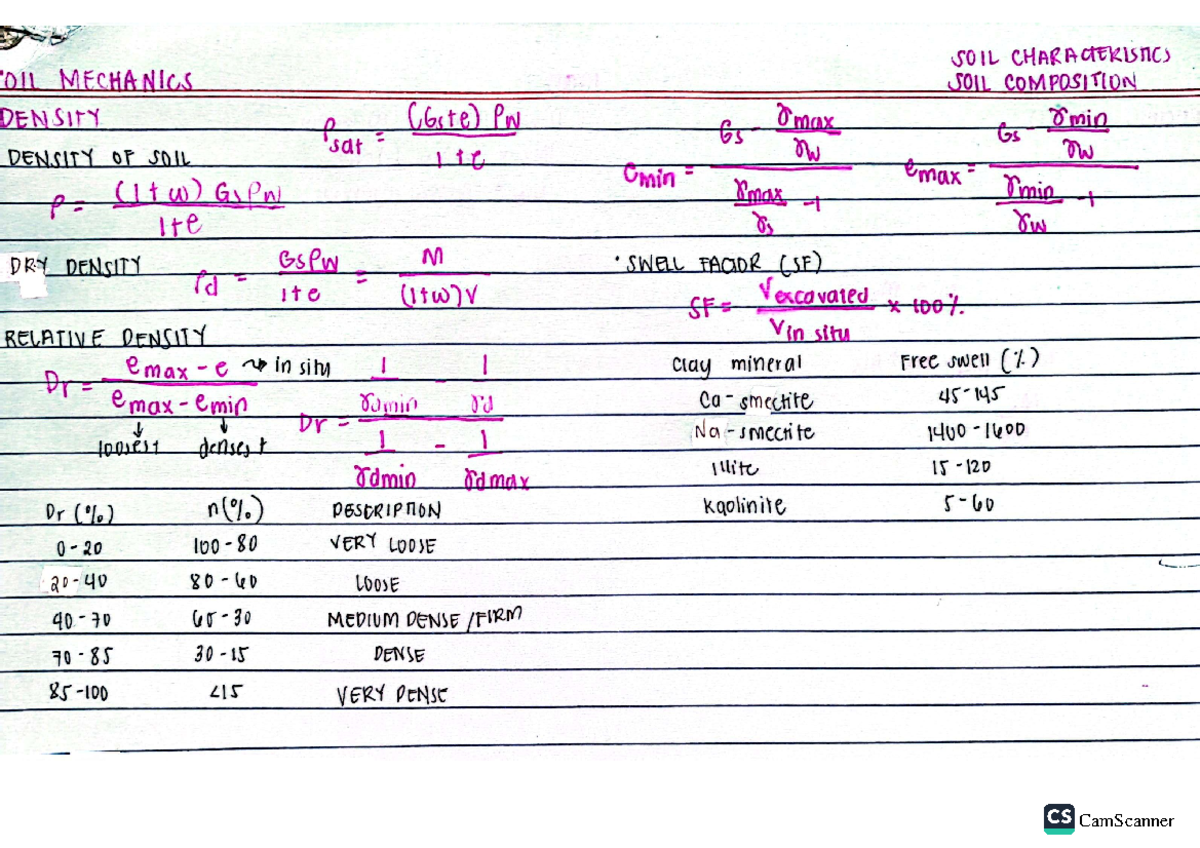 SOIL CHARACTERISTICS
OIL MECHANICS
SOIL COMPOSITION
DENSITY
DENSITY OF SOIL
ρ = (1+w) Gs ρw / 1+e
ρsat = (Gs+e) ρw / 1+e
emin = Gs - γmax/γw / γmax/γs - 1
emax = Gs - γmin/γw / γmin/γw - 1
DRY DENSITY
ρd = Gsρw / 1+e = M / (1+w)V
• SWELL FACTOR (SF)
SF = Vexcavated / Vin situ x 100%
RELATIVE DENSITY
Dr = emax - e / emax - emin
in situ
loosest densest
Dr = 1/γdmin - 1/γd / 1/γdmin - 1/γdmax
Clay mineral Free swell (%)
Ca-smectite 45-145
Na-smectite 1400-1600
Illite 15-120
kaolinite 5-60
Dr (%) n(%) DESCRIPTION
0-20 100-80 VERY LOOSE
20-40 80-60 LOOSE
40-70 65-30 MEDIUM DENSE/FIRM
70-85 30-15 DENSE
85-100 <15 VERY DENSE
CS CamScanner